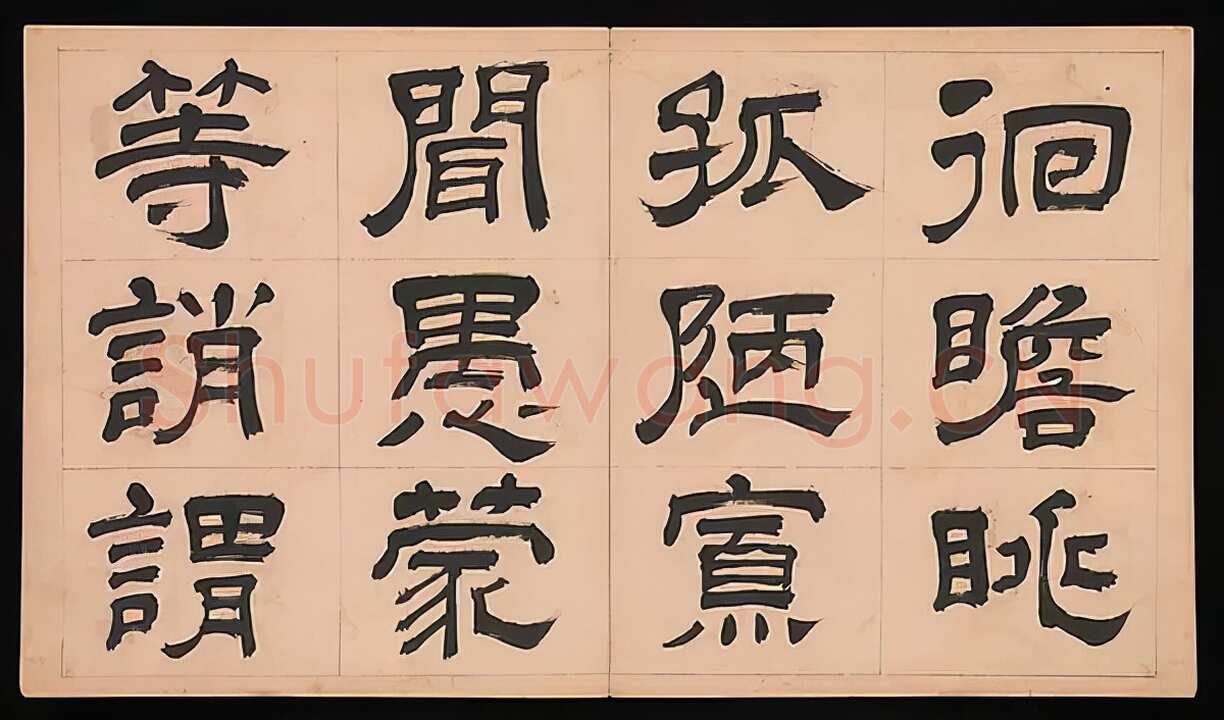 徊瞻眺
孤陋寡
聞愚蒙
等誚謂
Shufawang.CN